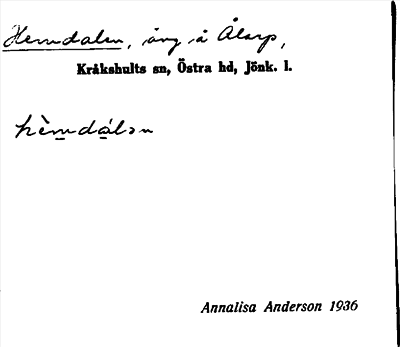 Hemdalen, äng å Ålarp,
Kråkshults sn, Östra hd, Jönk. l.
hèmdálən
Annalisa Anderson 1936